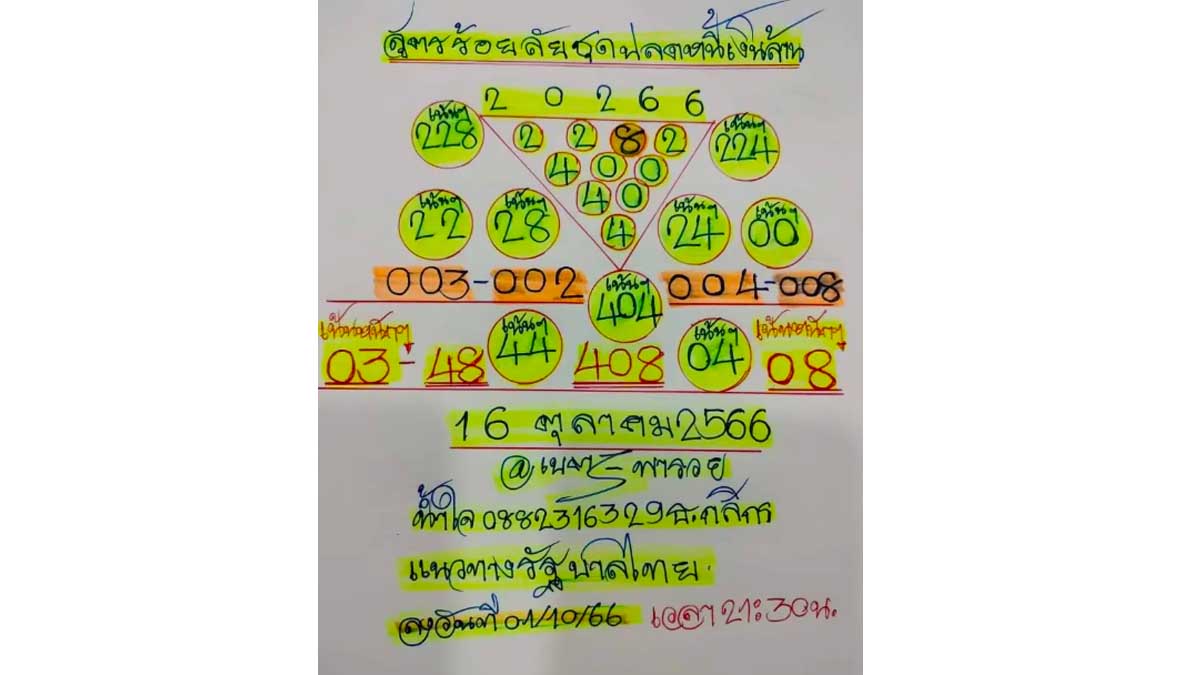 สูตรร้อยลัยชุดปลดหนี้เงินล้าน
2 0 2 6 6
เน้นๆ 228
2 2 8 2
เน้นๆ 224
4 0 0
4 0
4
เน้นๆ 22
เน้นๆ 28
เน้นๆ 24
เน้นๆ 00
003-002
เน้นๆ 404
004-008
เน้นหนักๆ
เน้นๆ 44
เน้นๆ 04
เน้นหนักๆ
03-48
408
08
16 ตุลาคม2566
พารวย
น้ำใจ 0882316329 ธ.กสิกร
แนวทางรัฐบาลไทย
ลงวันที่ 01/10/66 เวลา 21:30น.